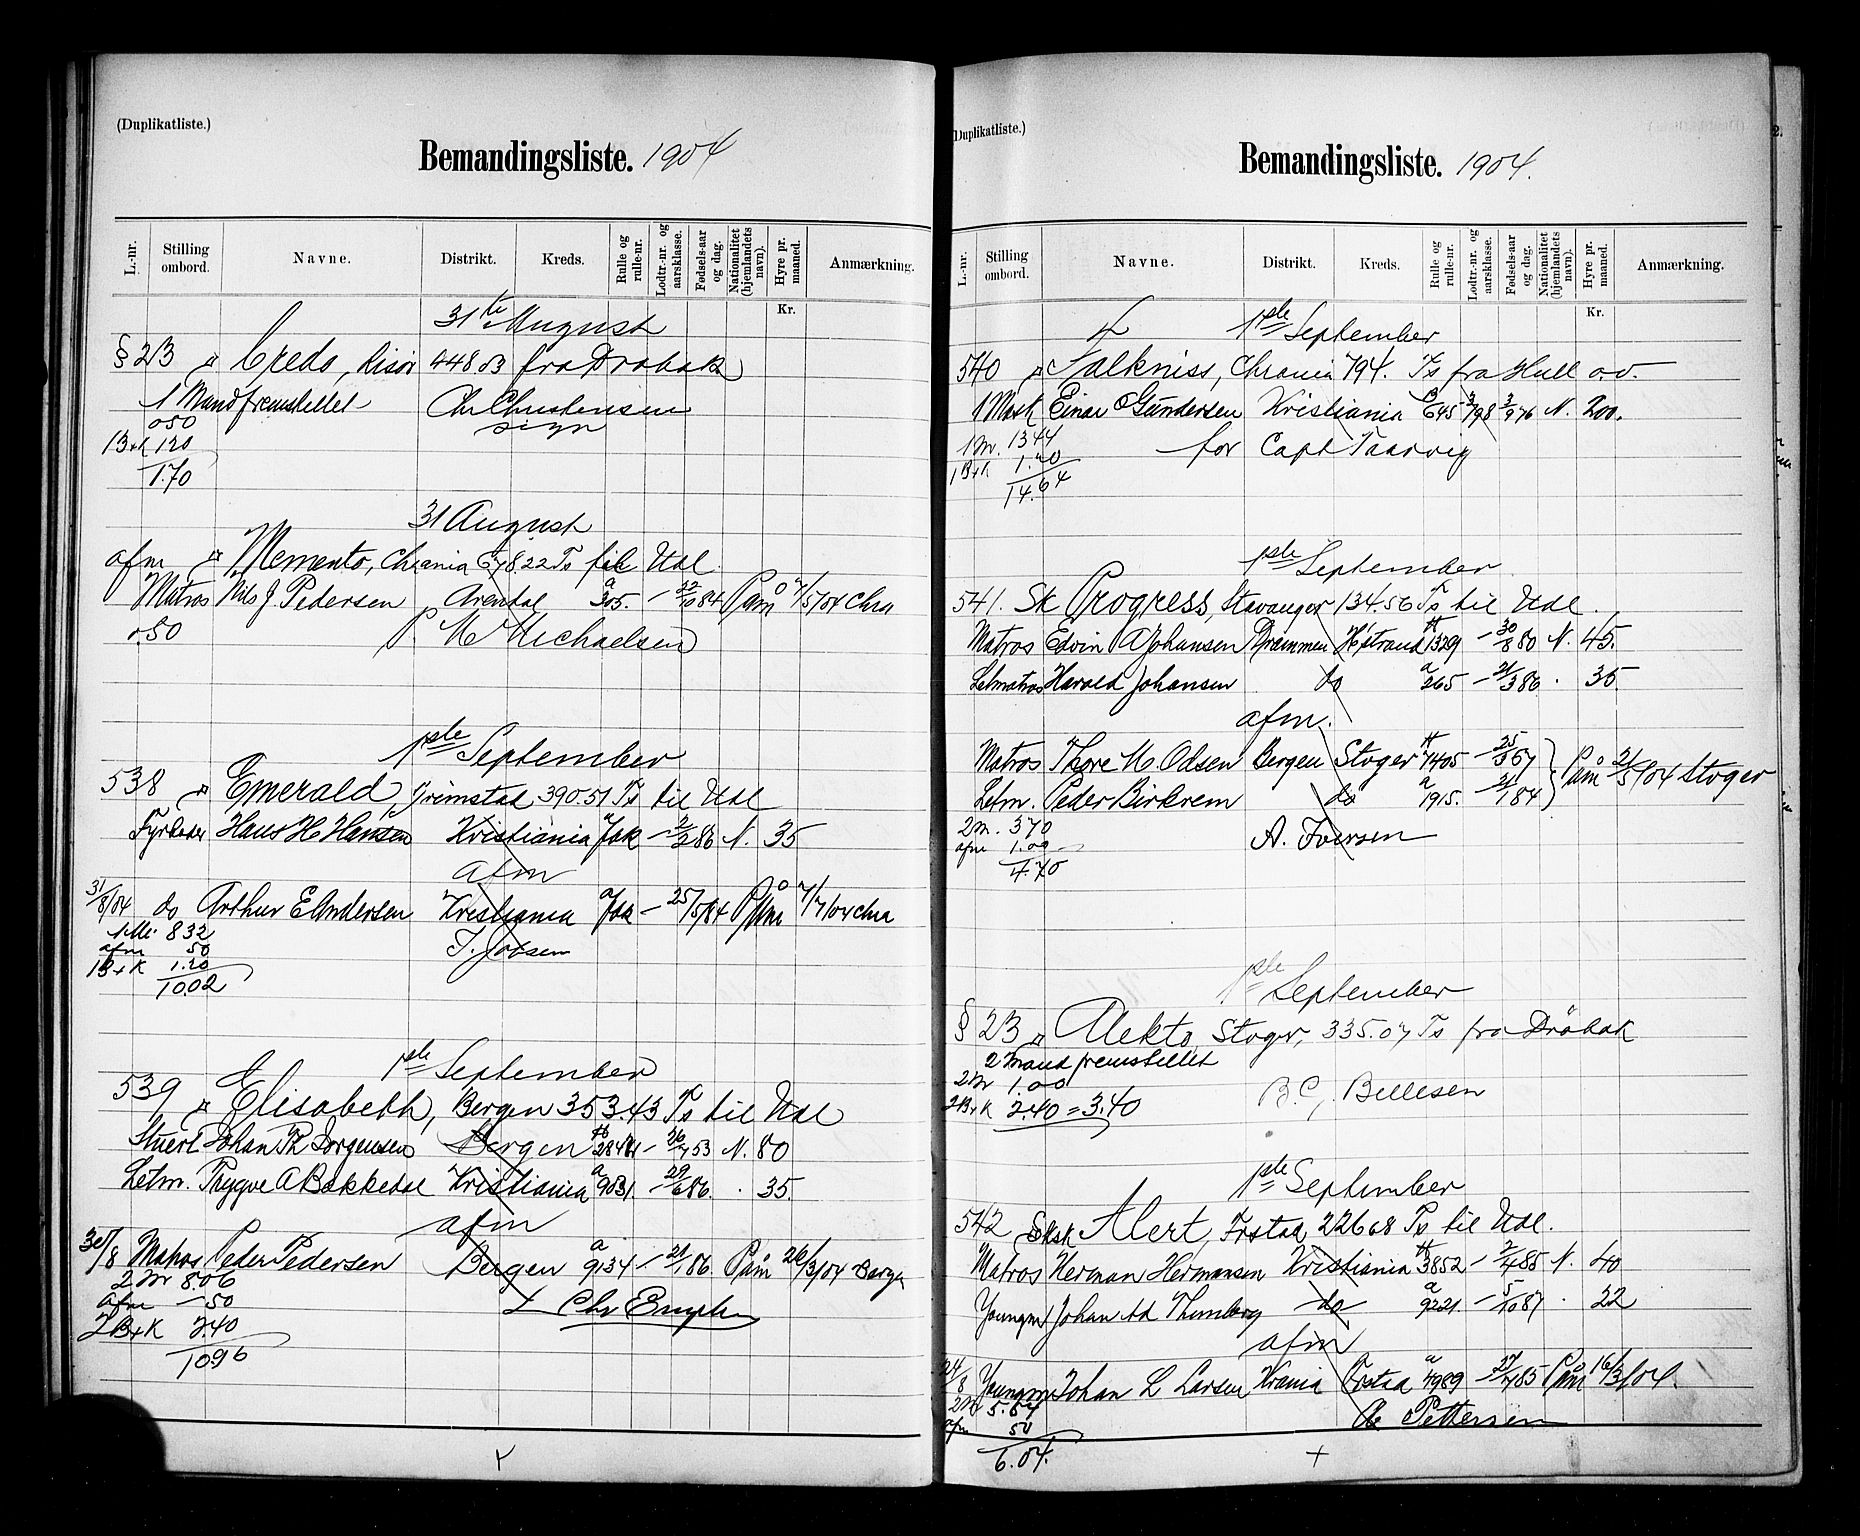 (Duplikatliste.)
Bemandingsliste. 1904
L.-nr. Stilling ombord. Navne. Distrikt. Kreds. Rulle og rulle-nr. Lodtr.-nr. og aarsklasse. Fødsels-aar og dag. Nationalitet (hjemlandets navn). Hyre pr. maaned. Anmærkning.
Kr.
31te August
§ 23 " Credo, Risör 448.03 fra Drobak
1 Mand fremstillet Chr Christensen
050 sign
1 B+K 120
1.70
31 August
afm " Memento, Chrania 678.22 Ts til Udl
Matros Nils J. Pedersen Arendal a 305. – 22/10 84 Påm 7/5/04 Chra
050 P. M Michaelsen
1ste September
538 " Emerald Grimstad 390.51 Ts til Udl
Fyrböder Hans H Hansen Kristiania a Jak – 2/2 86 N. 35
afm
31/8/04 do Arthur E Andersen Kristiania a Jak – 25/5/84 Påm 7/7/04 Chra
1 M. 832 T. Jobsen
afm 50
1 B+K 1.20
10.02
1ste September
539 " Elisabeth, Bergen 353.43 Ts til Udl
Stuert Johan Th Jorgensen Bergen H 2844 – 26/7 53 N. 80
Letm. Trygve A Bakkedal Kristiania a 9031 – 29/6 86. . 35.
afm
30/8 Matros Peder Pedersen Bergen a 9134 – 21/1 86. Påm 26/3/04 Bergen
2 M 8.06
afm – 50 Chr
2 B+K 2.40
10.96
(Duplikatliste.)
Bemandingsliste. 1904.
L.-nr. Stilling ombord. Navne. Distrikt. Kreds. Rulle og rulle-nr. Lodtr.-nr. og aarsklasse. Fødsels-aar og dag. Nationalitet (hjemlandets navn). Hyre pr. maaned. Anmærkning.
Kr.
1ste September
540 " Falkniss, Chrania 794. Ts fra Hull o.v.
1 Mask Einar Gundersen Kristiania 645 3/798 3/9 76 N. 200.
1 M. 1344 for Capt Taarvig
1 B+K 1.20
14.64
1ste September
541. Sk Progress, Stavanger 134.56 Ts til Udl.
Matros Edvin A Johansen Drammen H'strand H 1329 – 30/8 80 N. 45.
Letmatros Harald Johansen do a 265 – 21/3 86 . 35.
afm.
Matros Thore M. Odsen Bergen Stvger H 7405 – 25/3 67 } Påm 21/5/04 Stvger
Letm. Peder Birkrem do a 1915. – 21/1 84
2 M. 370 A. Iversen
afm 1.00
4.70
1ste September
§ 23 " Alekto, Stvgr, 335.07 Ts fra Dröbak
2 Mand fremstillet
2 M 1.00 B. C. Bellesen
2 B+K 2.40 = 3.40
1ste September
542 Sksk Alert, Frstad 226.68 Ts til Udl.
Matros Herman Hermansen Kristiania H 3852 – 2/4 85 N. 40
Youngm Johan Ad Thunberg do a 9221. – 5/10 87 . 22
afm
24/8 Youngm Johan L Larsen Krania Frstad a 4989 – 27/7 85 Påm 16/3/04.
2 M 5.54 Pettersen
afm 50
6.04.